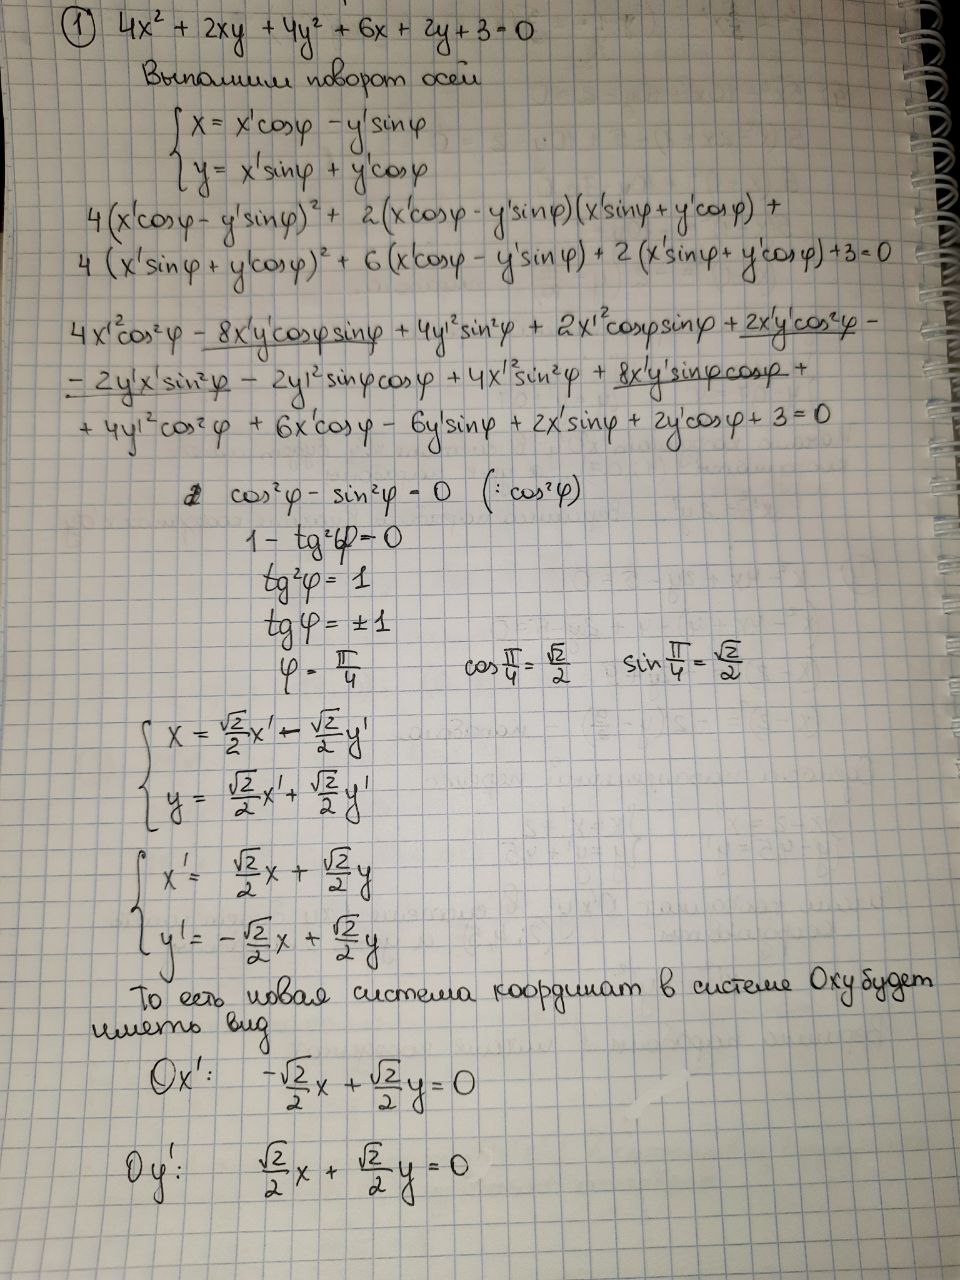 ① 4x² + 2xy + 4y² + 6x + 2y + 3 = 0
Выполним поворот осей
{ x = x'cosφ - y'sinφ
{ y = x'sinφ + y'cosφ
4(x'cosφ - y'sinφ)² + 2(x'cosφ - y'sinφ)(x'sinφ + y'cosφ) +
4(x'sinφ + y'cosφ)² + 6(x'cosφ - y'sinφ) + 2(x'sinφ + y'cosφ) + 3 = 0
4x'²cos²φ - 8x'y'cosφsinφ + 4y'²sin²φ + 2x'²cosφsinφ + 2x'y'cos²φ -
- 2y'x'sin²φ - 2y'²sinφcosφ + 4x'²sin²φ + 8x'y'sinφcosφ +
+ 4y'²cos²φ + 6x'cosφ - 6y'sinφ + 2x'sinφ + 2y'cosφ + 3 = 0
cos²φ - sin²φ = 0 (: cos²φ)
1 - tg²φ = 0
tg²φ = 1
tgφ = ±1
φ = π/4 cos π/4 = √2/2 sin π/4 = √2/2
{ x = √2/2 x' - √2/2 y'
{ y = √2/2 x' + √2/2 y'
{ x' = √2/2 x + √2/2 y
{ y' = -√2/2 x + √2/2 y
То есть новая система координат в системе Oxy будет
иметь вид
Ox': -√2/2 x + √2/2 y = 0
Oy': √2/2 x + √2/2 y = 0